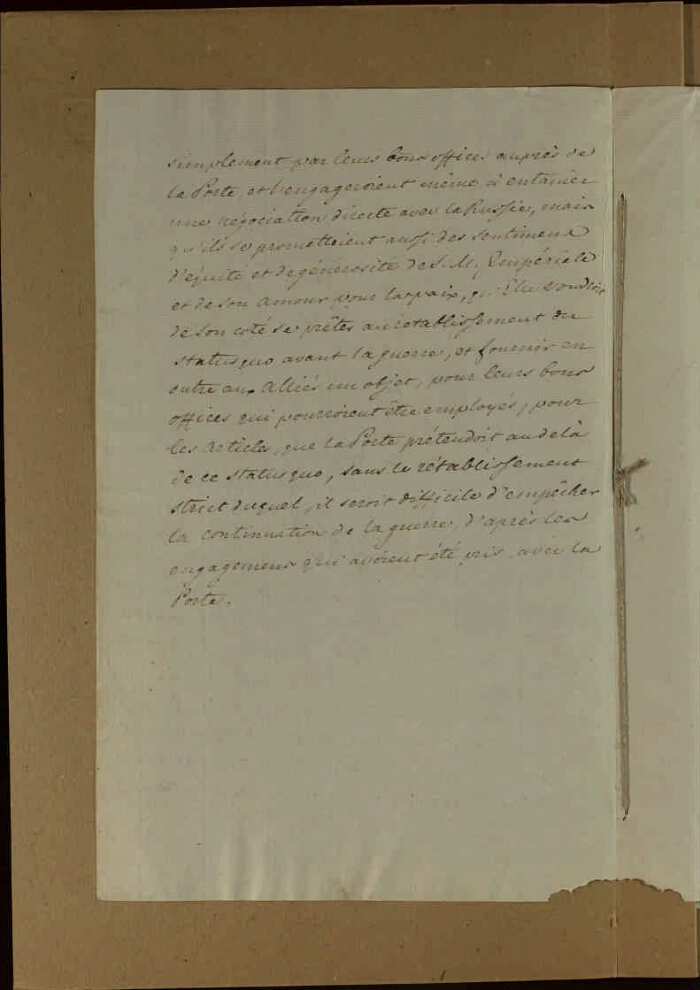 simplement par leurs bons offices auprès de
la Porte, et l'engageroient même à entamer
une négociation directe avec la Russie, mais
qu'ils se promettoient aussi des sentimens
d'équité et de générosité de S. M. Impériale
et de son amour pour la paix, qu'Elle voudroit
de son coté se prêter au rétablissement du
status quo avant la guerre, et fournir en
outre aux Alliés un objet, pour leurs bons
offices qui pourroient être employés, pour
les Articles, que la Porte prétendoit au delà
de ce status quo, sans le rétablissement
strict duquel, il seroit difficile d'empêcher
la continuation de la guerre, d'après les
engagemens qui avoient été pris avec la
Porte.